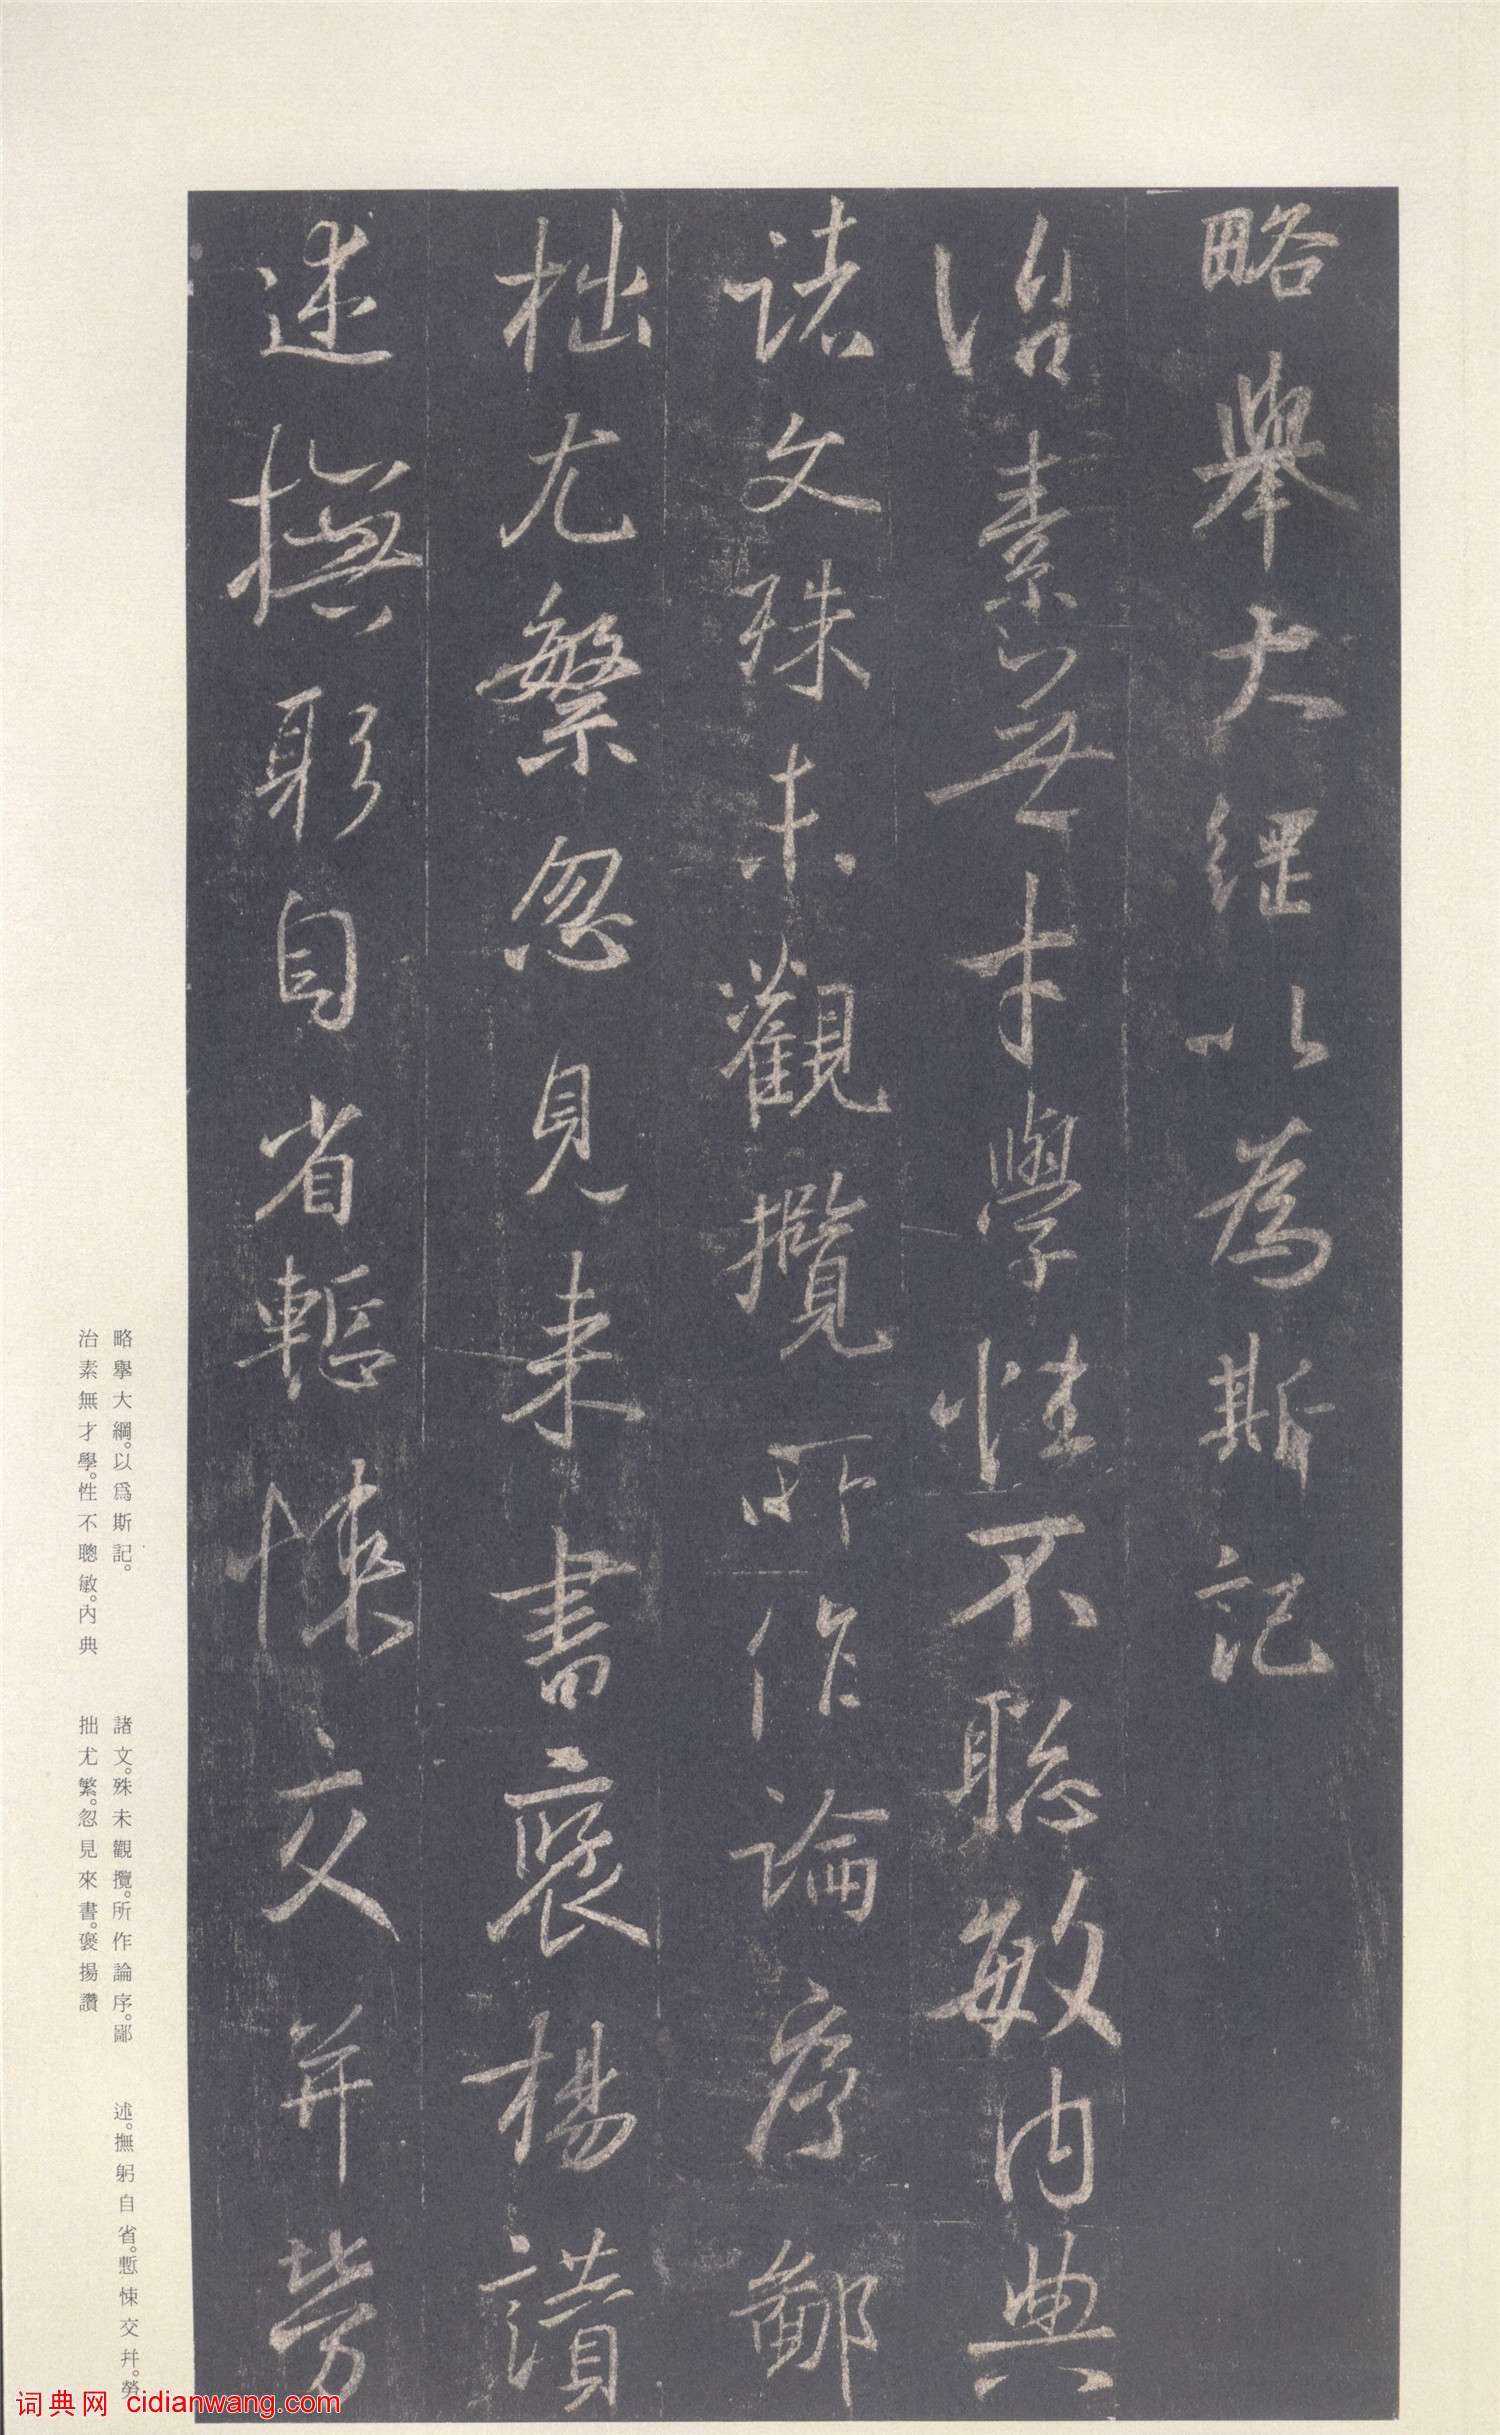 略舉大綱以為斯記
治素無才學性不聰敏內典
諸文殊未觀攬所作論序鄙
拙尤繁忽見来書褒揚讃
述撫躬自省慙悚交并勞
略舉大綱。以爲斯記。
治素無才學。性不聰敏。內典
諸文。殊未觀攬。所作論序。鄙
拙尤繁。忽見來書。褒揚讚
述。撫躬自省。慙悚交幷。勞
词典网 cidianwang.com